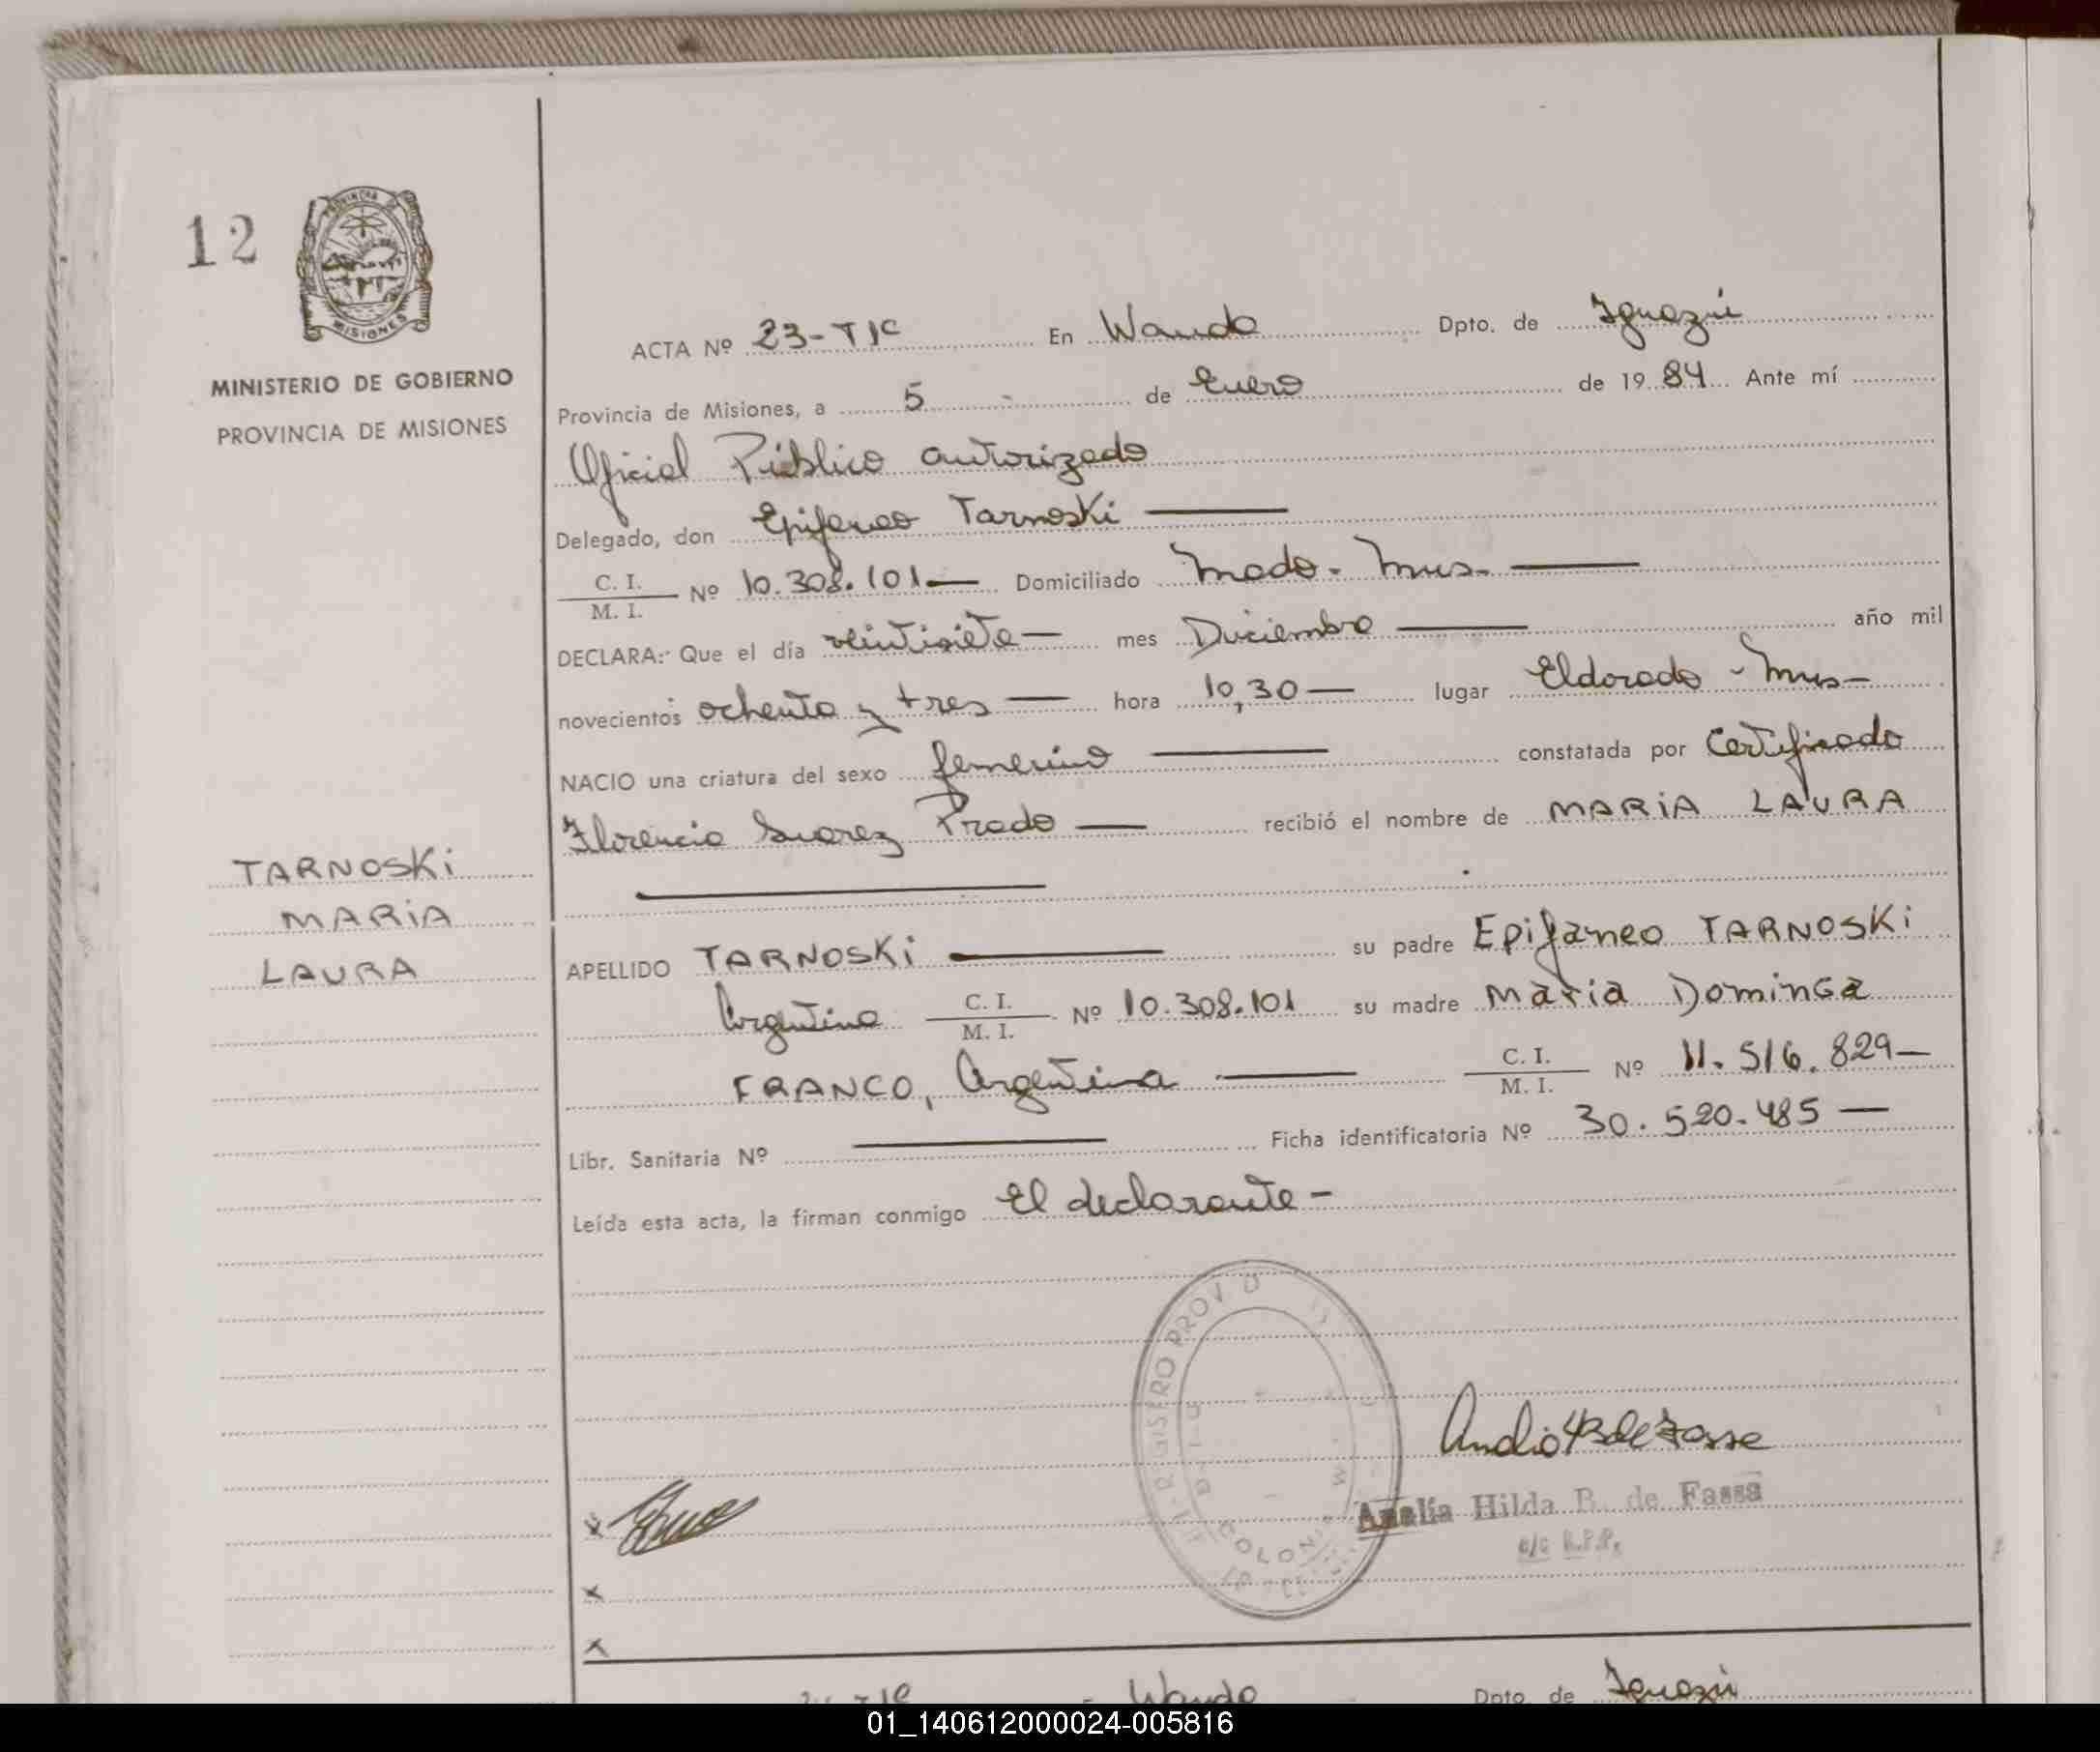 12
PROVINCIA DE
MISIONES
MINISTERIO DE GOBIERNO
PROVINCIA DE MISIONES
ACTA Nº 23-T1C En Wanda Dpto. de Iguazú
Provincia de Misiones, a 5 de Enero de 1984 Ante mí
Oficial Público autorizado
Delegado, don Epifaneo Tarnoski
C. I. / M. I. Nº 10.308.101 Domiciliado Mado - Mns.
DECLARA: Que el día veintisiete mes Diciembre año mil
novecientos ochenta y tres hora 10,30 lugar Eldorado - Mns
NACIO una criatura del sexo femenino constatada por Certificado
Florencio Suarez Prado recibió el nombre de MARIA LAURA
TARNOSKI
MARIA
LAURA
APELLIDO TARNOSKI su padre Epifaneo TARNOSKI
Argentino C. I. / M. I. Nº 10.308.101 su madre Maria Dominga
FRANCO, Argentina C. I. / M. I. Nº 11.516.829
Libr. Sanitaria Nº Ficha identificatoria Nº 30.520.485
Leída esta acta, la firman conmigo El declarante
REGISTRO PROV. D
COLONIA
Amalia Hilda B. de Fassa
a/c R.P.P.
x
x
x
Wanda Dpto. de Iguazú
01_140612000024-005816